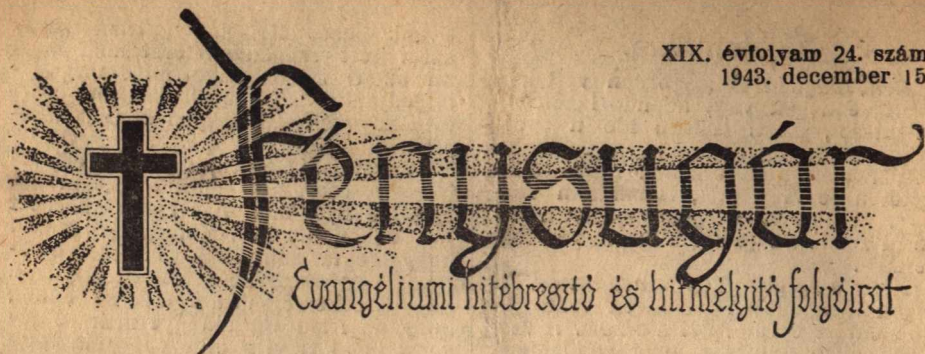 XIX. évfolyam 24. szám
1943. december 15
Fénysugár
Evangéliumi hitébresztő és hitmélyítő folyóirat